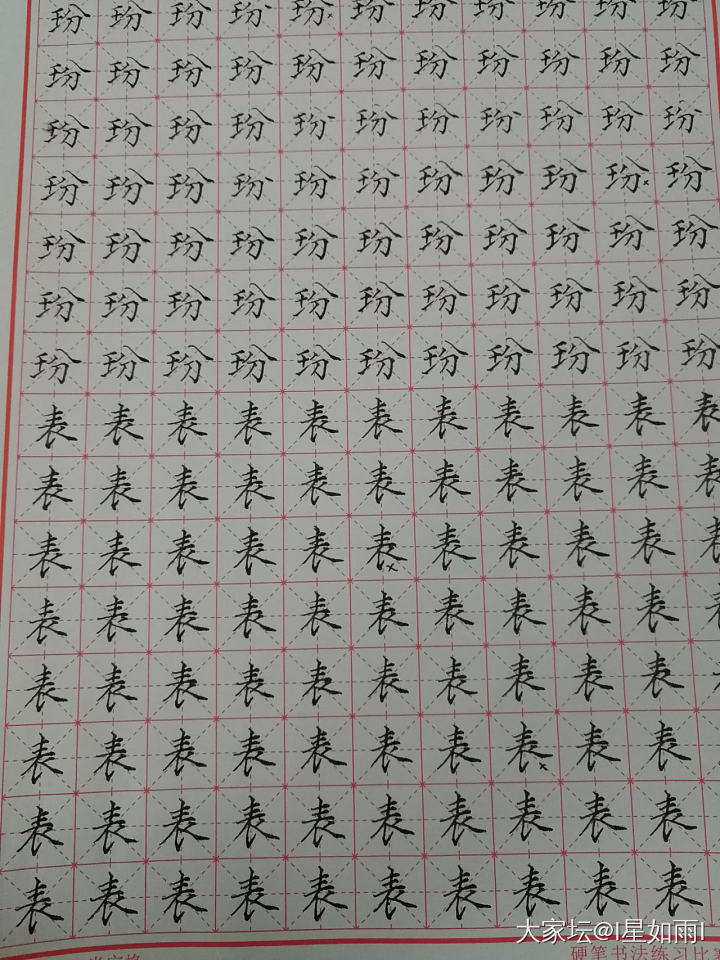 玢玢玢玢玢玢玢玢玢玢玢
玢玢玢玢玢玢玢玢玢玢玢
玢玢玢玢玢玢玢玢玢玢玢
玢玢玢玢玢玢玢玢玢玢玢
玢玢玢玢玢玢玢玢玢玢玢
玢玢玢玢玢玢玢玢玢玢玢
玢玢玢玢玢玢玢玢玢玢玢
表表表表表表表表表表表
表表表表表表表表表表表
表表表表表表表表表表
表表表表表表表表表表
表表表表表表表表表表
表表表表表表表表表表
表表表表表表表表表表
表表表表表表表表表表
大家坛@I星如雨I
硬笔书法练习比